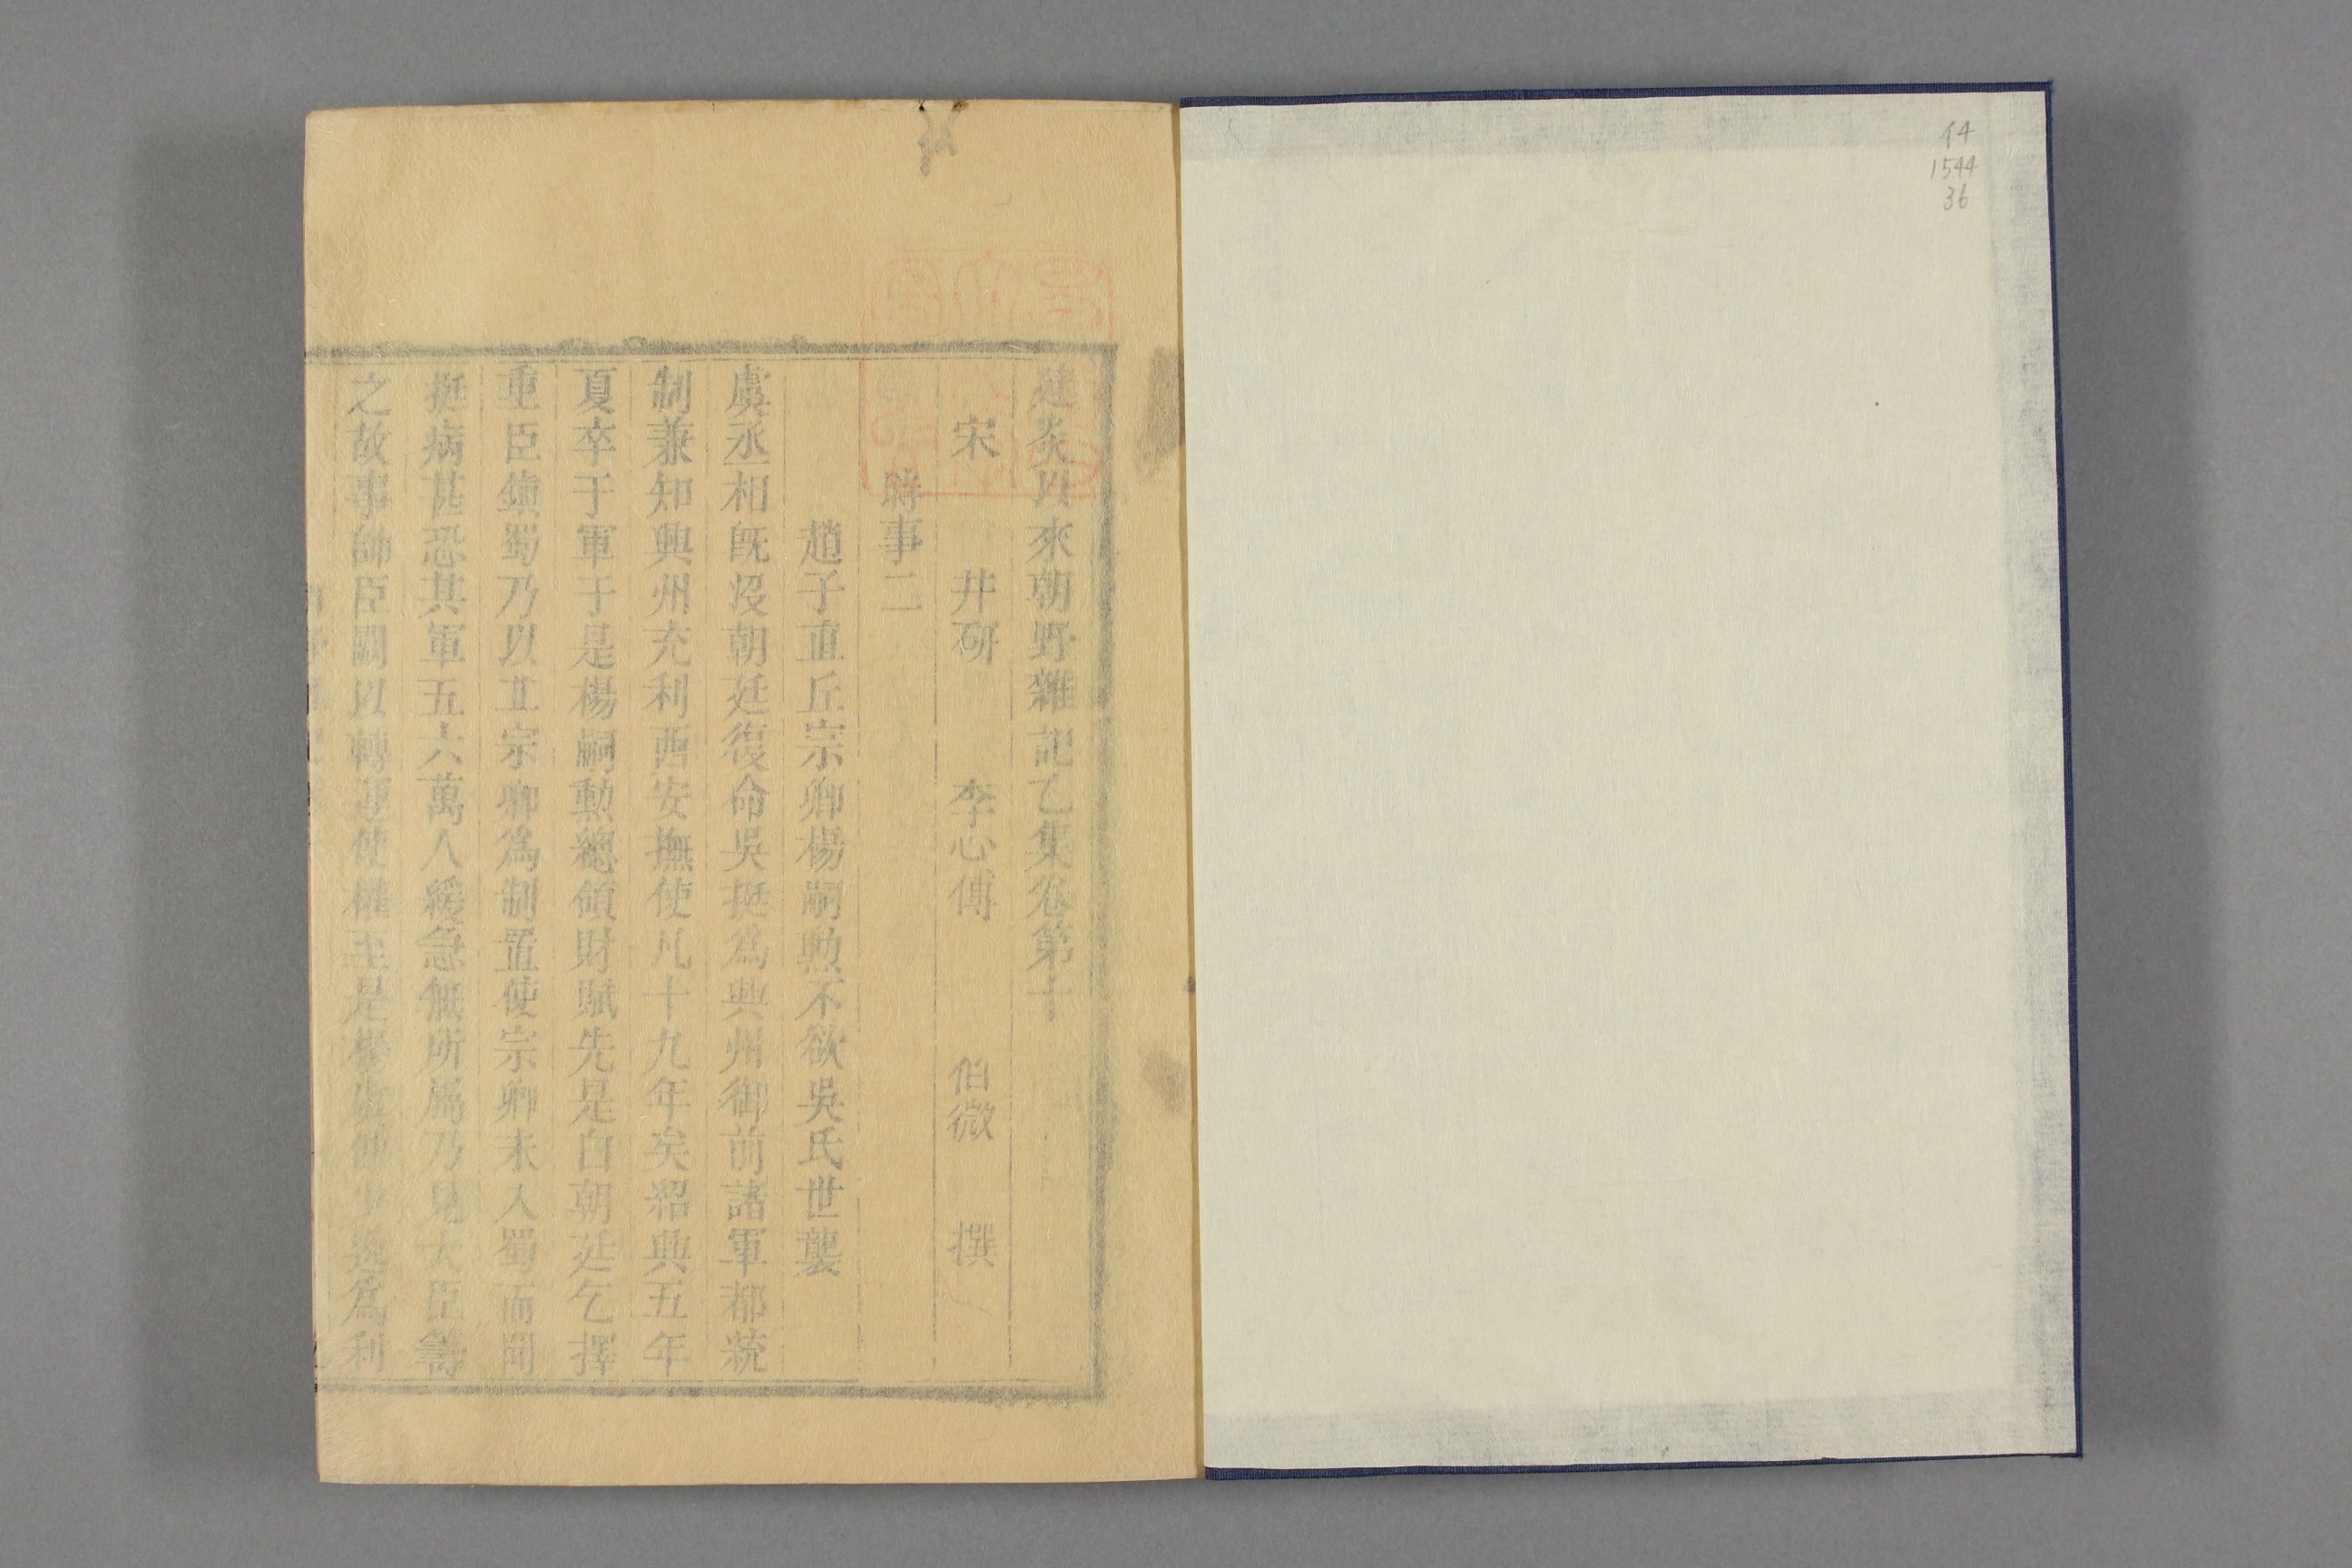 建炎以來朝野雜記乙集卷第十
宋 井研 李心傳 伯微 撰
時事二
趙子直丘宗卿楊嗣勲不欲吳氏世襲
虞丞相旣沒朝廷復命吳挺爲興州御前諸軍都統
制兼知興州充利西安撫使凡十九年矣紹興五年
夏卒于軍于是楊嗣勲總領財賦先是白朝廷乞擇
重臣鎮蜀乃以丘宗卿爲制置使宗卿未入蜀而聞
挺病甚恐其軍五六萬人緩急無所屬乃見大臣籌
之故事帥臣闕以轉運使權至是楊 爲利
14
1544
36